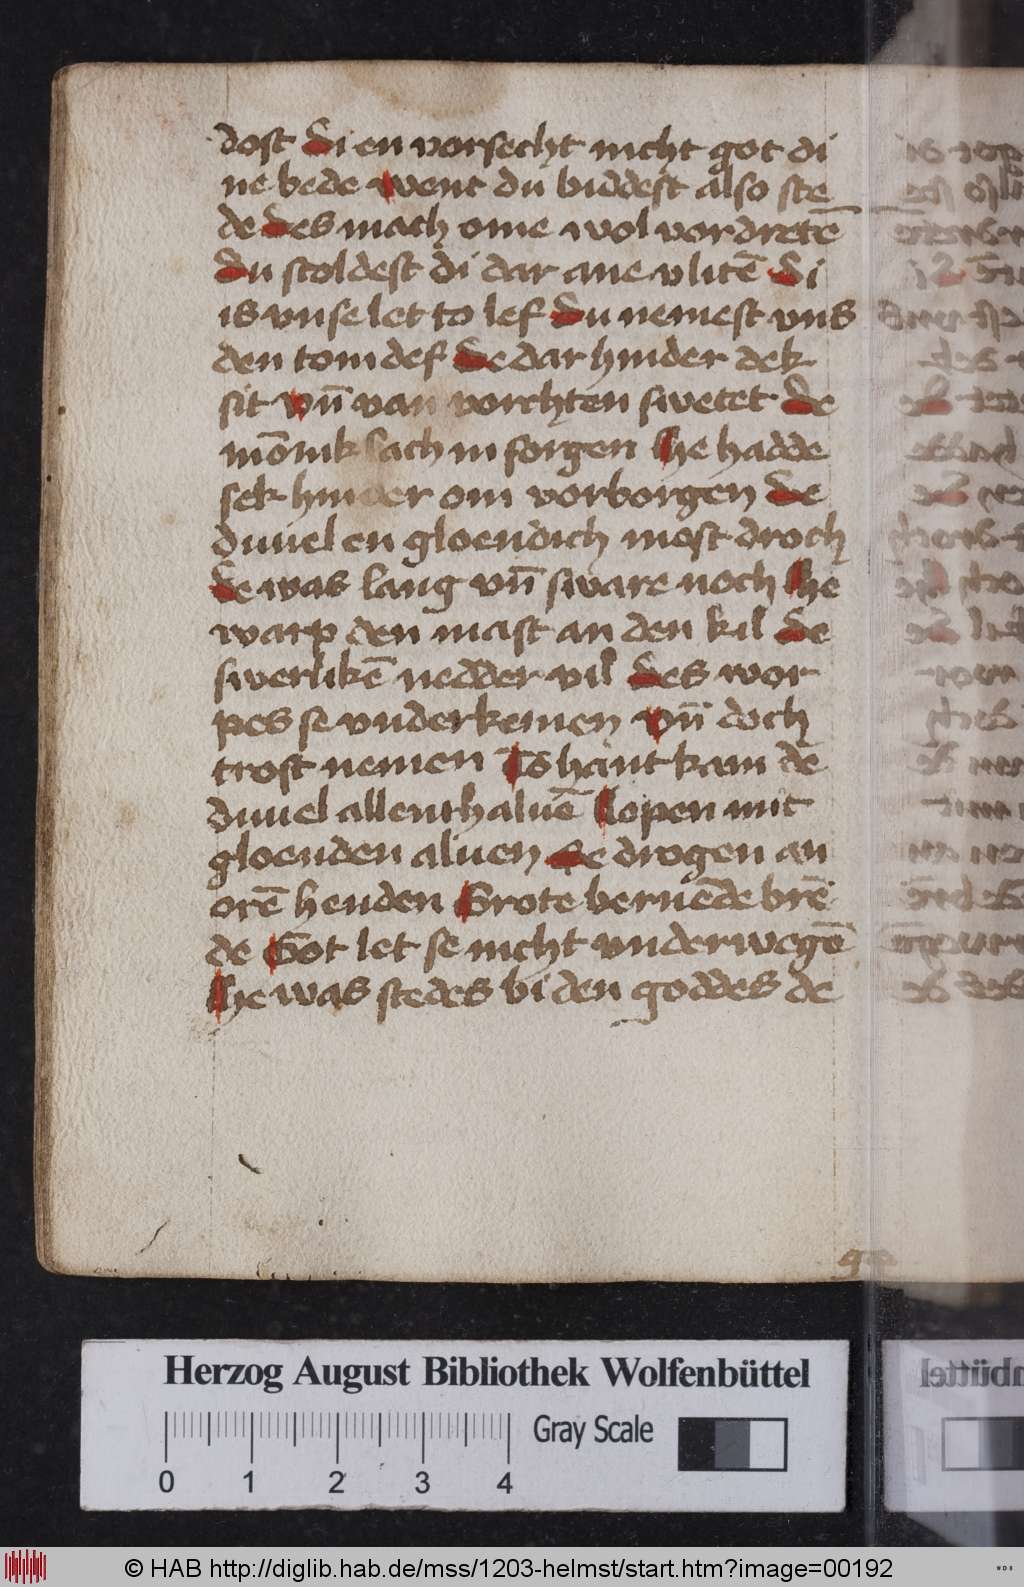 dost Di en vorsecht nicht got di
ne bede Went du biddest also ste
de Des mach ome wol vordretē
Du scoldest di dar ane vlitē Di
is vnse let to lef Du nemest vns
den tom def De dar hinder dek
sit Vn̄ van vorchten swetet De
mōnik lach in sorgen He hadde
sek hinder om vorborgen De
duuel en gloendich mest droch
De was lang vn̄ sware noch He
warp den mast an den kil De
swerlikē nedder vil Des wor
pes se vnderkemen Vn̄ doch
trost nemen To hant kam de
duuel allenthaluē Lopen mit
gloenden aluen Se drogen an
orē henden Grote bernēde brē
de Got let se nicht vnderwegē
He was stedes bi den goddes de
Herzog August Bibliothek Wolfenbüttel
Gray Scale
0 1 2 3 4
© HAB http://diglib.hab.de/mss/1203-helmst/start.htm?image=00192